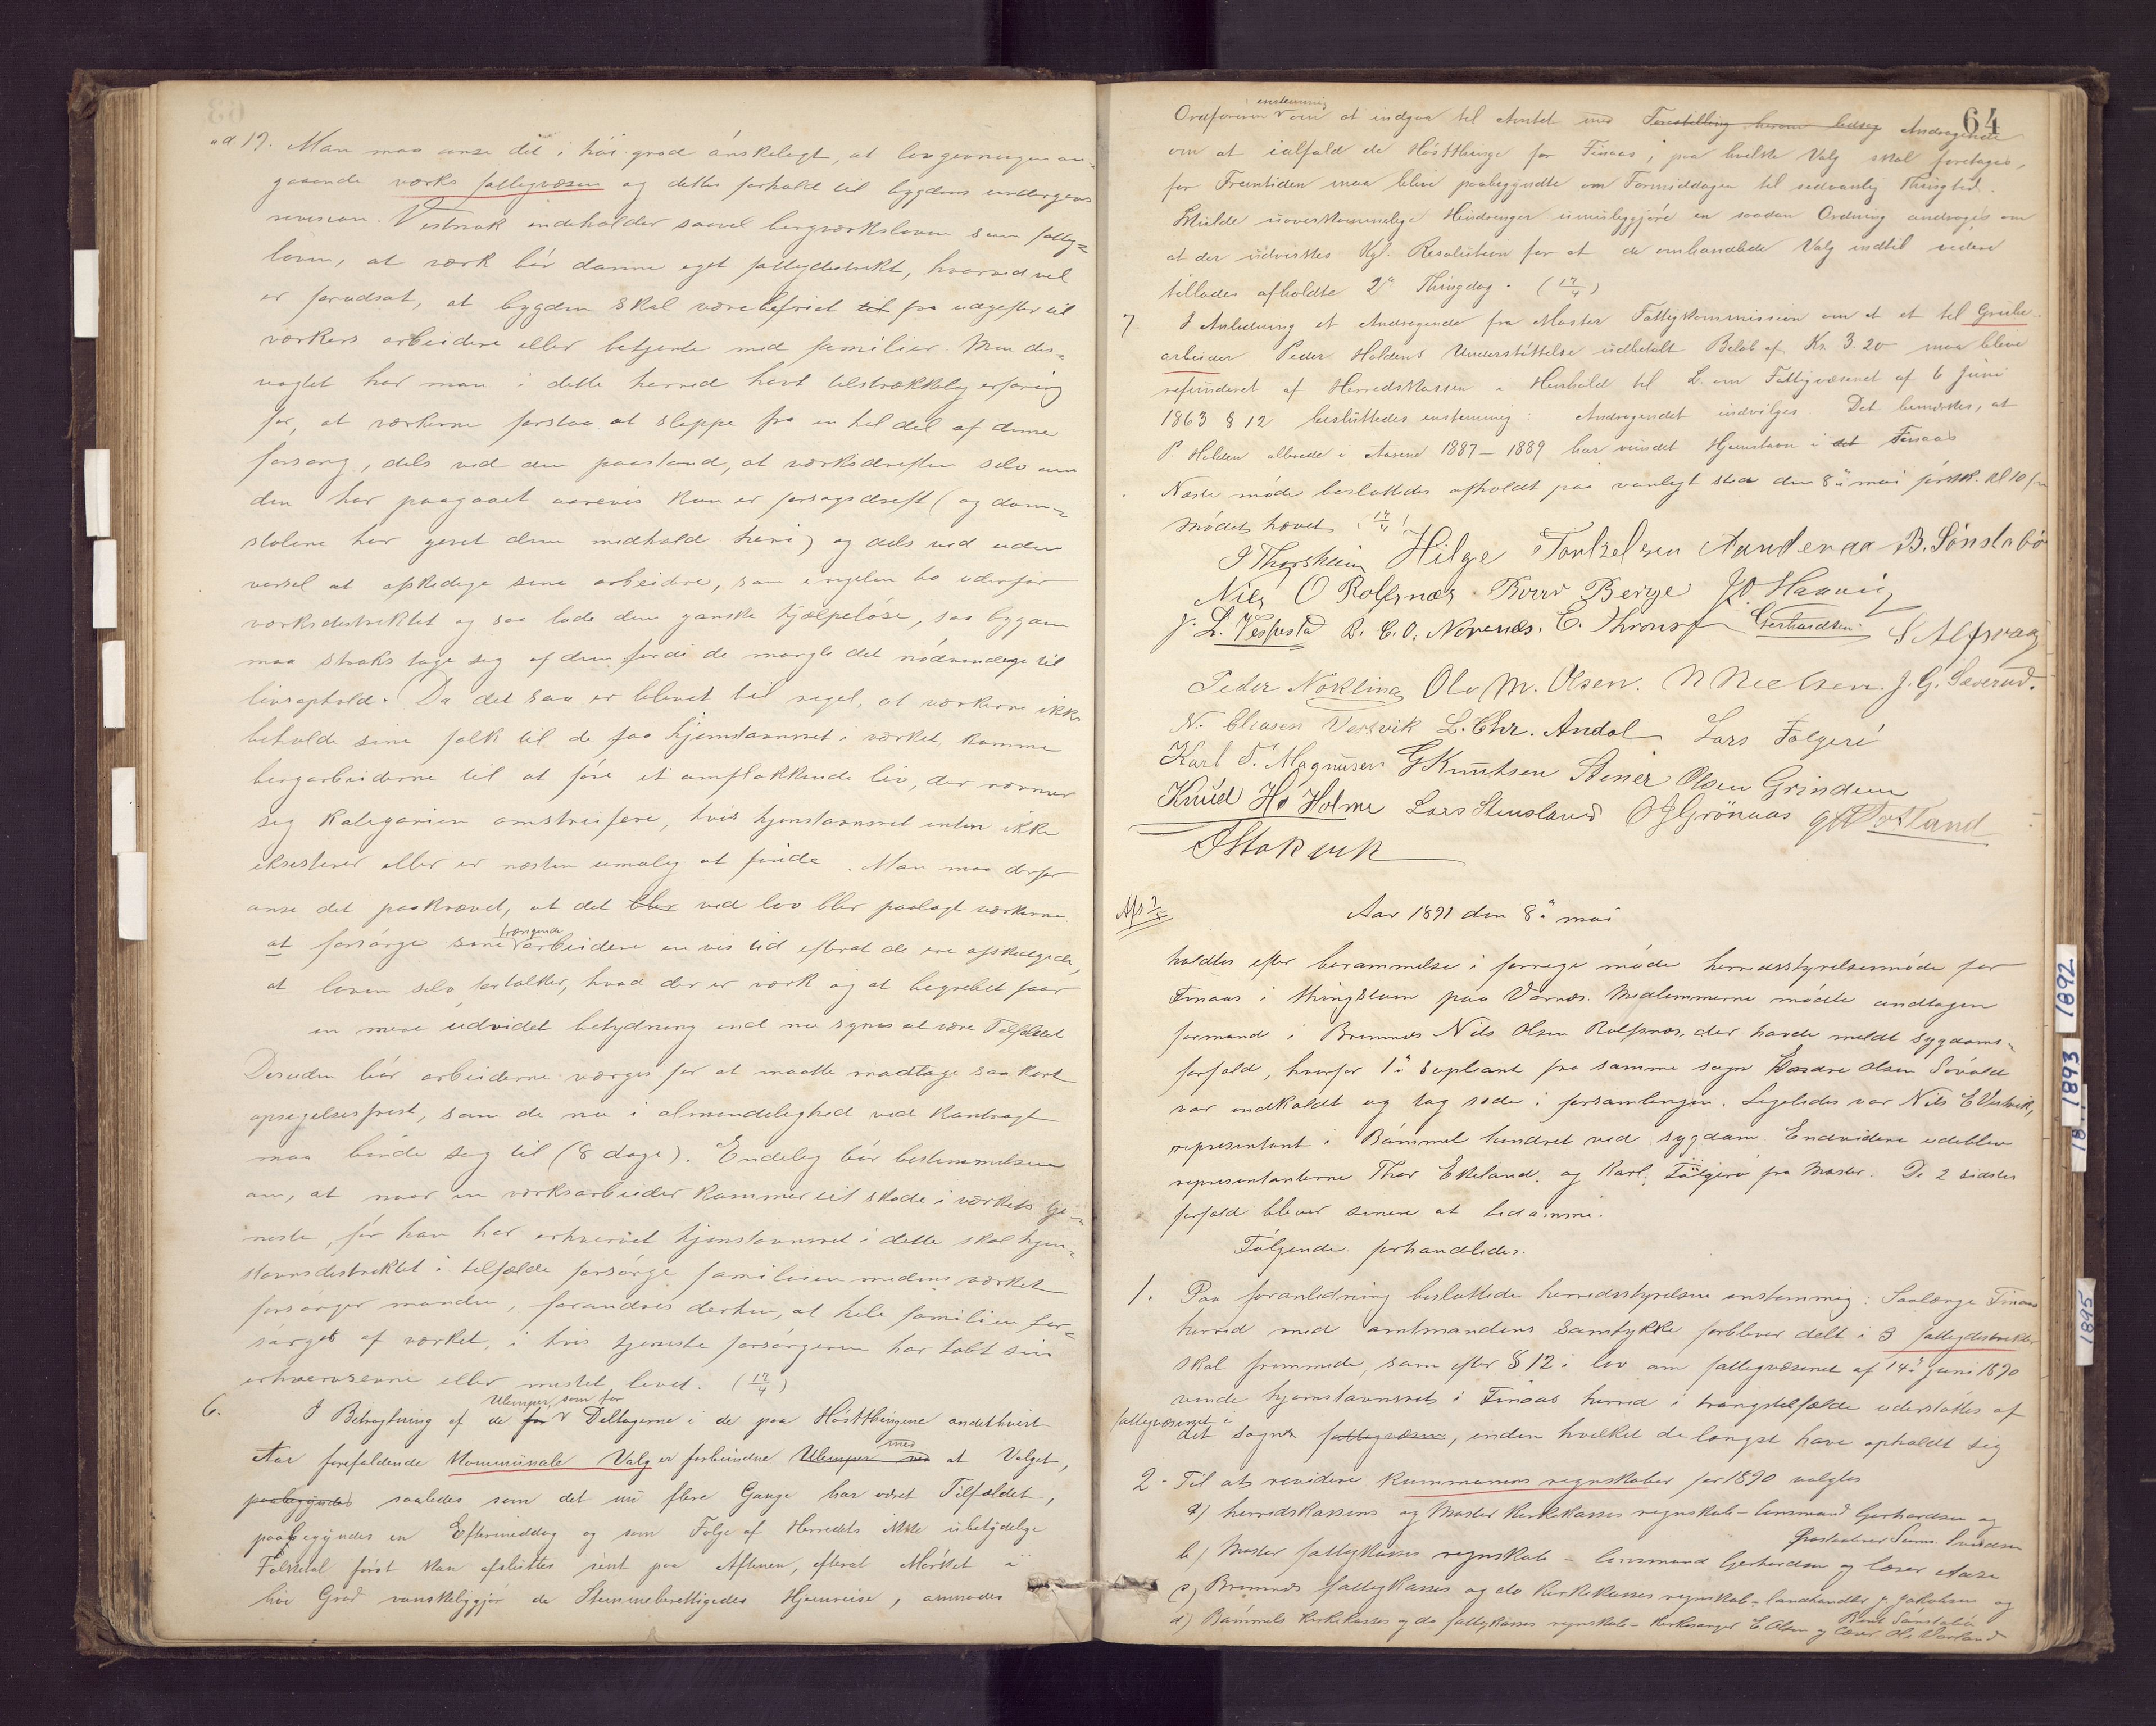 ad 17. Man maa anse det i høi grad ønskeligt, at lovgivningen an-
gaaende værks fattigvæsen og dettes forhold til bygdens undergives
revision. Vistnok indeholder saavel bergværksloven som fattig-
loven, at værk bør danne eget fattigdistrikt, hvorved vel
er forudsat, at bygden skal være befriet til fra udgifter til
værkers arbeidere eller betjente med familier. Men des-
uagtet har man i dette herred havt tilstrækkelig erfaring
for, at værkerne forstaa at slippe fra en hel del af denne
forsørg, dels ved den paastand, at værksdriften selv om
den har paagaaet aarevis kun er forsøgsdrift (og dom-
stolene har givet dem medhold heri) og dels ved uden
varsel at afskedige sine arbeidere, som i regelen bo udenfor
værksdistriktet og saa lade dem ganske hjælpeløse, saa bygden
maa straks tage sig af dem, fordi de mangle det nødvendige til
livsophold. Da det saa er blevet til regel, at værkerne ikke
beholde sine folk til de faa hjemstavnsret i værket, komme
bergarbeiderne til at føre et omflakkende liv, der nærmer
sig kategorien omstreifere, hvis hjemstavnsret enten ikke
eksisterer eller er næsten umulig at finde. Man maa derfor
anse det paakrævet, at det blir ved lov blir paalagt værkerne
at forsørge sine trængende arbeidere en vis tid efterat de ere afskedigede,
at loven selv fortolker, hvad der er værk og at begrebet faar
en mere udvidet betydning end nu synes at være Tilfældet
Desuden bør arbeiderne værges for at maatte modtage saa kort
opsigelsesfrist, som de nu i almindelighed ved kontragt
maa binde sig til (8 dage). Endelig bør bestemmelsen
om, at naar en værksarbeider kommer til skade i værkets tje-
neste, før han har erhvervet hjemstavnsret i dette skal hjem-
stavnsdistriktet i tilfælde forsørge familien medens værket
forsørger manden, forandres derhen, at hele familien for-
sørges af værket, i hvis tjeneste forsørgeren har tabt sin
erhvervsevne eller mistet livet. (17/4)
6. I Betragtning af de for Ulemper, som for Deltagerne i de paa Høstthingene andethvert
Aar forefaldende Kommunale Valg er forbundne Ulemper ved med at Valget,
paabegyndes saaledes som det nu flere Gange har været Tilfældet,
paabegyndes en Eftermiddag og som Følge af Herredets ikke ubetydelige
Folketal først kan afsluttes sent paa Aftenen, efterat Mørket i
høi Grad vanskeliggjør de Stemmeberettigedes Hjemreise, anmodes
64
Ordføreren enstemmig om at indgaa til Amtet med Forestilling herom ledsag Andragende
om at ialfald de Høstthinge for Finaas, paa hvilke Valg skal foretages,
for Fremtiden maa blive paabegyndte om Formiddagen til sedvanlig Thingtid.
Skulde uoverkommelige Hindringer umuliggjøre en saadan Ordning andrages om
at der udvirkes Kgl. Resolution for at de omhandlede Valg indtil videre
tillades afholdte 2den Thingdag. (17/4)
7. I Anledning et Andragende fra Moster Fattigkommission om at et til Grube-
arbeider Peder Holdens Understøttelse udbetalt Beløb af Kr. 3.20 maa blive
refunderet af Herredskassen i Henhold til L. om Fattigvæsenet af 6 Juni
1863 § 12 besluttedes enstemmig: Andragendet indvilges Det bemærkes, at
P. Holden allerede i Aarene 1887-1889 har vundet Hjemstavn i det Finaas
Næste møde besluttedes afholdt paa vanligt sted den 8de mai førstk. kl 10 fm
Mødet hævet (17/4)
I Thorsheim Hilge Torkelsen Aandenaa B. Sønstabø
Niels O Rolfsnæs Baar Berge J. O. Haavig
J. L. Vespestad B. C. O. Norenæs. E. Thronsen Gerhardsen S Alfsvaag
Peder Nøkling Ole M. Olsen. N Nielsen. J. G. Sæverud.
N. Eliasen Vestvik L. Chr. Andal Lars Følgerø
Karl T. Magnusen G Knutsen Steiner Olsen Grindem
Knud Hs Holme Lars Stensland O J Grønaas
I Stokvik
Afs
Aar 1891 den 8de mai
holdtes efter berammelse i forrige møde herredsstyrelsesmøde for
Finaas i thingstuen paa Vernæs. Medlemmerne mødte undtagen
formand i Bremnes Nils Olsen Rolfsnæs, der havde meldt sygdoms-
forfald, hvorfor 1ste supleant fra samme sogn Hardre Olsen Søvold
var indkaldt og tog sæde i forsamlingen. Ligeledes var Nils E Vestvik,
representant i Bømmel hindret ved sygdom. Endvidere udeblev
representanterne Thor Ekeland og Karl Følgerø fra Moster. De 2 sidstes
forfald bliver senere at bedømme.
Følgende forhandledes.
1. Paa foranledning besluttede herredsstyrelsen enstemmig: Saalænge Finaas
herred med amtmandens samtykke forbliver delt i 3 fattigdistrikter
skal fremmede, som efter § 12 i lov om fattigvæsenet af 14de juni 1890
vinde hjemstavnsret i Finaas herred i trangstilfælde understøttes af
fattigvæsenet i det sogns fattigvæsen, inden hvilket de længst have opholdt sig
2. Til at revidere kommunens regnskaber for 1890 valgtes
a) herredskassens og Moster kirkekasses regnskab - lensmand Gerhardsen og
b) Moster fattigkasses regnskab - lensmand Gerhardsen og lærer Aase
c) Bremnes fattigkasses og do kirkekasses regnskab - landhandler J. Jakobsen og
Bent Sønstabø
d) Bømmels kirkekasses og do fattigkasses regnskab - kirkesanger E Olsen og lærer Hs Vorland
1892
1893
18
1895